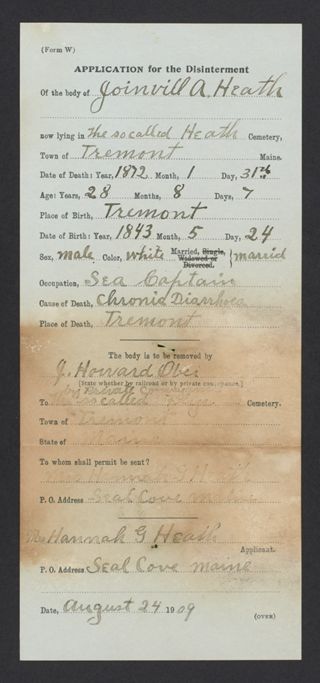 (Form W)
APPLICATION for the Disinterment
Of the body of Joinvill A Heath
now lying in the so called Heath Cemetery,
Town of Tremont Maine.
Date of Death: Year, 1872 Month, 1 Day, 31th
Age: Years, 28 Months, 8 Days, 7
Place of Birth, Tremont
Date of Birth: Year, 1843 Month, 5 Day, 24
Sex, male Color, white Married, Single, Widowed or Divorced. } married
Occupation, Sea Captain
Cause of Death, Chronic Diarrhoea
Place of Death, Tremont
The body is to be removed by
J. Howard Ober
[State whether by railroad or by private conveyance.]
by Private
To so called Cemetery.
Town of Tremont
State of Maine
To whom shall permit be sent?
P. O. Address Seal Cove Maine
Mrs Hannah G Heath
Applicant.
P. O. Address Seal Cove Maine
Date, August 24 1909
(OVER)